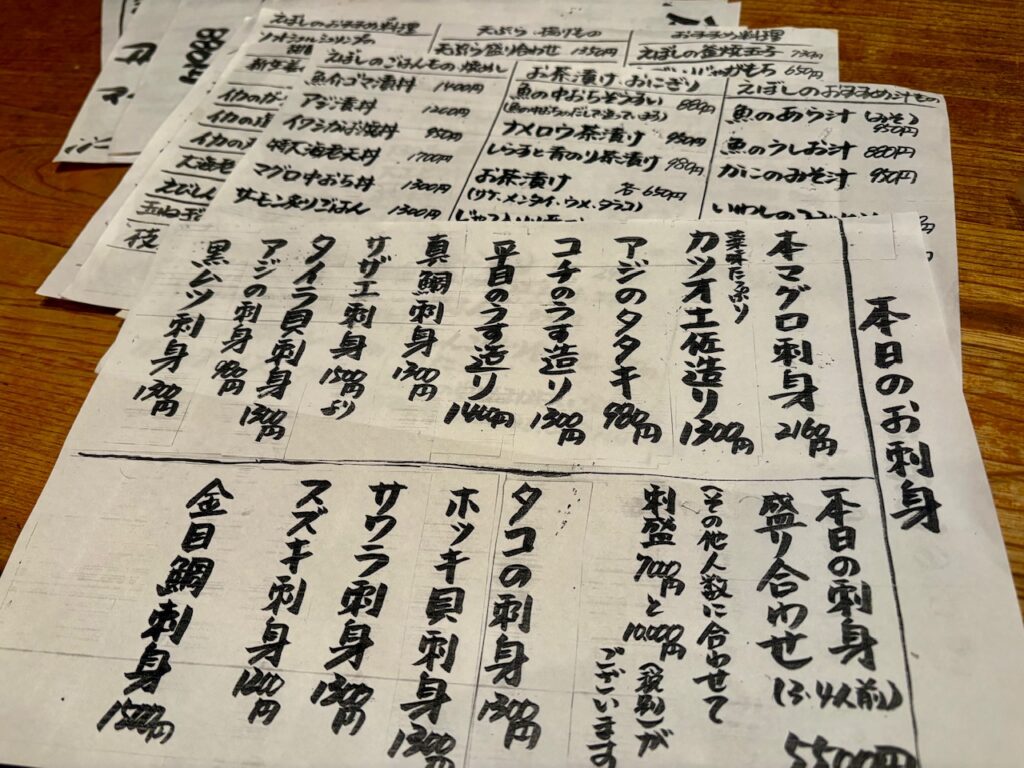 本日のお刺身
本マグロ刺身 2160円
薬味たっぷり
カツオ土佐造り 1300円
アジのタタキ 980円
コチのうす造り 1300円
平目のうす造り 1440円
真鯛刺身 1300円
サザエ刺身 1500円より
タイラ貝刺身 1300円
アジの刺身 980円
黒ムツ刺身 1300円
本日の刺身
盛り合わせ (3・4人前)
5500円
(その他人数に合わせて
刺盛 7000円と10,000円 (税別)が
ございます
タコの刺身 1300円
ホッキ貝刺身 1300円
サワラ刺身 1300円
スズキ刺身 1200円
金目鯛刺身 1500円
えぼしのおすすめ料理
天ぷら・揚げもの
おすすめ料理
天ぷら盛り合わせ 1350円
えぼしの釜焼玉子 730円
650円
えぼしのごはんもの
魚介ゴマ漬丼 1400円
アジ漬丼 1260円
イワシかば焼丼 950円
特大海老天丼 1700円
マグロ中おち丼 1300円
サーモン炙りごはん 1300円
お茶漬け、おにぎり
魚の中おちぞうすい 880円
ナメロウ茶漬け 950円
しらすと青のり茶漬け 980円
お茶漬け 各650円
(サケ、メンタイ、ウメ、タラコ)
えぼしのおすすめ汁もの
魚のあら汁 (みそ) 950円
魚のうしお汁 880円
かにのみそ汁 950円
いわしの